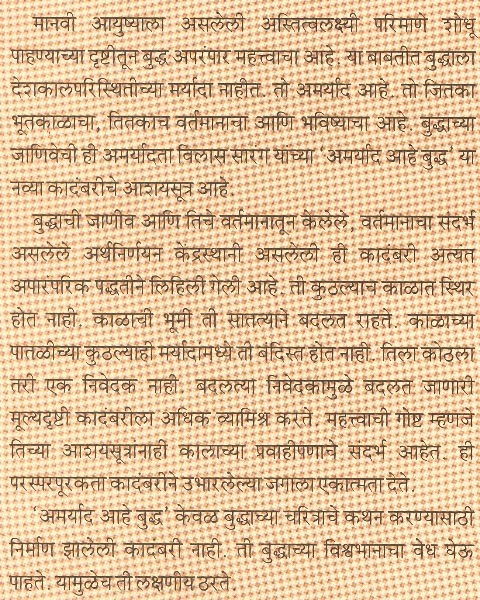 मानवी आयुष्याला असलेली अस्तित्वलक्ष्यी परिमाणे शोधू
पाहण्याच्या दृष्टीतून बुद्ध अपरंपार महत्त्वाचा आहे. या बाबतीत बुद्धाला
देशकालपरिस्थितीच्या मर्यादा नाहीत. तो अमर्याद आहे. तो जितका
भूतकाळाचा, तितकाच वर्तमानाचा आणि भविष्याचा आहे. बुद्धाच्या
जाणिवेची ही अमर्यादता विलास सारंग यांच्या 'अमर्याद आहे बुद्ध' या
नव्या कादंबरीचे आशयसूत्र आहे.
बुद्धाची जाणीव आणि तिचे वर्तमानातून केलेले, वर्तमानाचा संदर्भ
असलेले अर्थनिर्णयन केंद्रस्थानी असलेली ही कादंबरी अत्यंत
अपारंपरिक पद्धतीने लिहिली गेली आहे. ती कुठल्याच काळात स्थिर
होत नाही. काळाची भूमी ती सातत्याने बदलत राहते. काळाच्या
पातळीच्या कुठल्याही मर्यादांमध्ये ती बंदिस्त होत नाही. तिला कोठला
तरी एक निवेदक नाही. बदलत्या निवेदकामुळे बदलत जाणारी
मूल्यदृष्टी कादंबरीला अधिक व्यामिश्र करते. महत्त्वाची गोष्ट म्हणजे
तिच्या आशयसूत्रांनाही कालाच्या प्रवाहीपणाचे संदर्भ आहेत. ही
परस्परपूरकता कादंबरीने उभारलेल्या जगाला एकात्मता देते.
'अमर्याद आहे बुद्ध' केवळ बुद्धाच्या चरित्राचे कथन करण्यासाठी
निर्माण झालेली कादंबरी नाही. ती बुद्धाच्या विश्वभानाचा वेध घेऊ
पाहते. यामुळेच ती लक्षणीय ठरते.